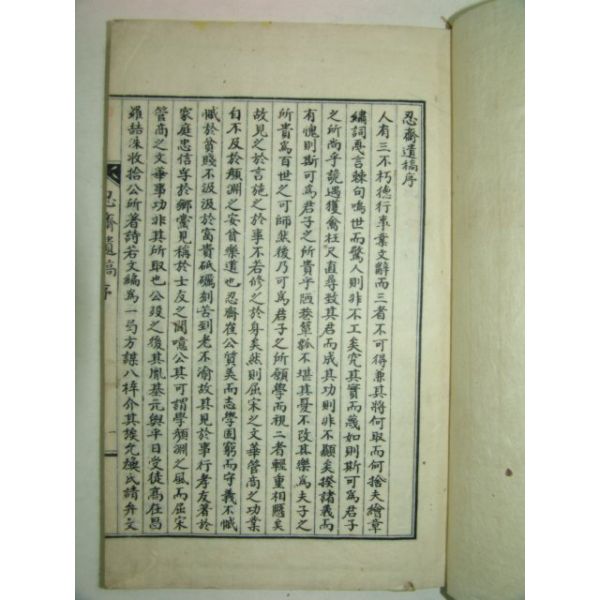 忍齋遺稿序
人有三不朽德行事業文辭而三者不可得兼其將何取而何捨夫繪章
繡詞忢言棘句鳴世而驚人則非不工矣究其實而蔑如則斯可爲君子
之所尚乎詭遇獲禽枉尺直尋致其君而成其功則非不顯矣揆諸義而
有愧則斯可爲君子之所貴乎陋巷簞瓢不堪其憂不改其樂爲夫子之
所貴爲百世之可師然後乃可爲君子之所願學而視二者輕重相懸矣
故見之於言施之於事不若修之於身矣然則屈宋之文華管商之功業
自不及於顔淵之安貧樂道也忍齋崔公質美而志學固窮而守義不慽
慽於貧賤不汲汲於富貴砥礪刻苦到老不渝故其見於事行孝友著於
家庭忠信孚於鄉黨見稱於士友之間噫公其可謂學顔淵之風而屈宋
管商之文華事功非其所取也公歿之後其胤基元與平日受徒高在昌
羅喆洙收拾公所著詩若文編爲一弓方謀入梓介其族允煥氏請弁文
忍齋遺稿 序 一